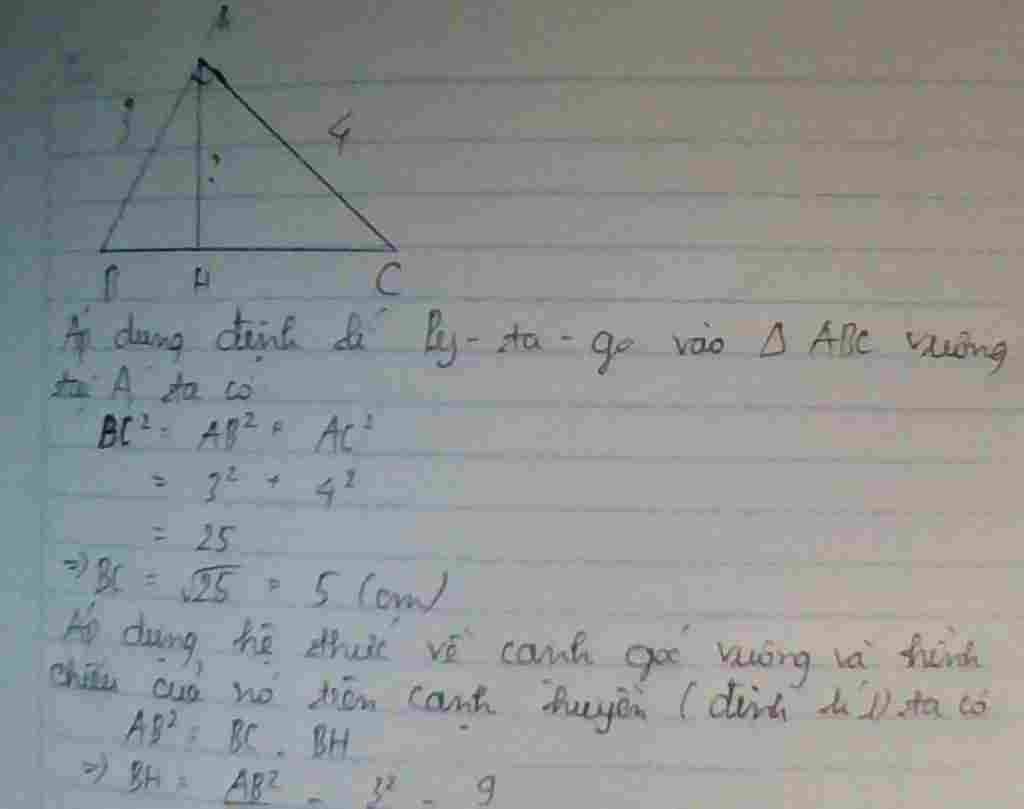 A
3
4
?
B H C
Áp dụng định lí Py-ta-go vào Δ ABC vuông
tại A ta có
BC² = AB² + AC²
= 3² + 4²
= 25
=> BC = √25 = 5 (cm)
Áp dụng hệ thức về cạnh góc vuông và hình
chiếu của nó trên cạnh huyền (định lí 1) ta có
AB² = BC . BH
=> BH = AB² = 3² = 9